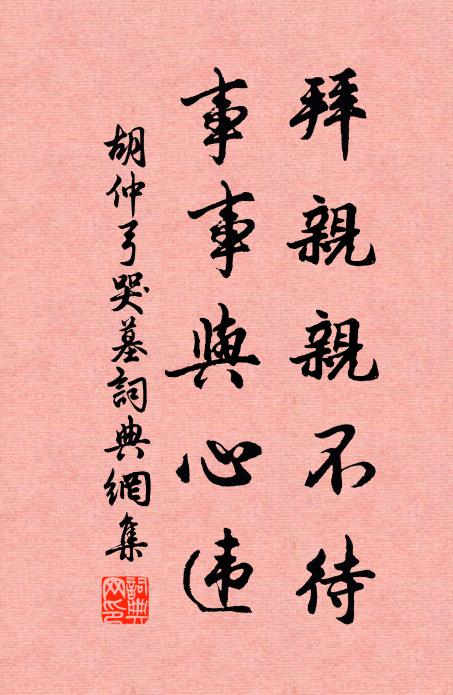 拜親親不待
事事與心违
胡仲弓哭墓詞典網集
詞典網印